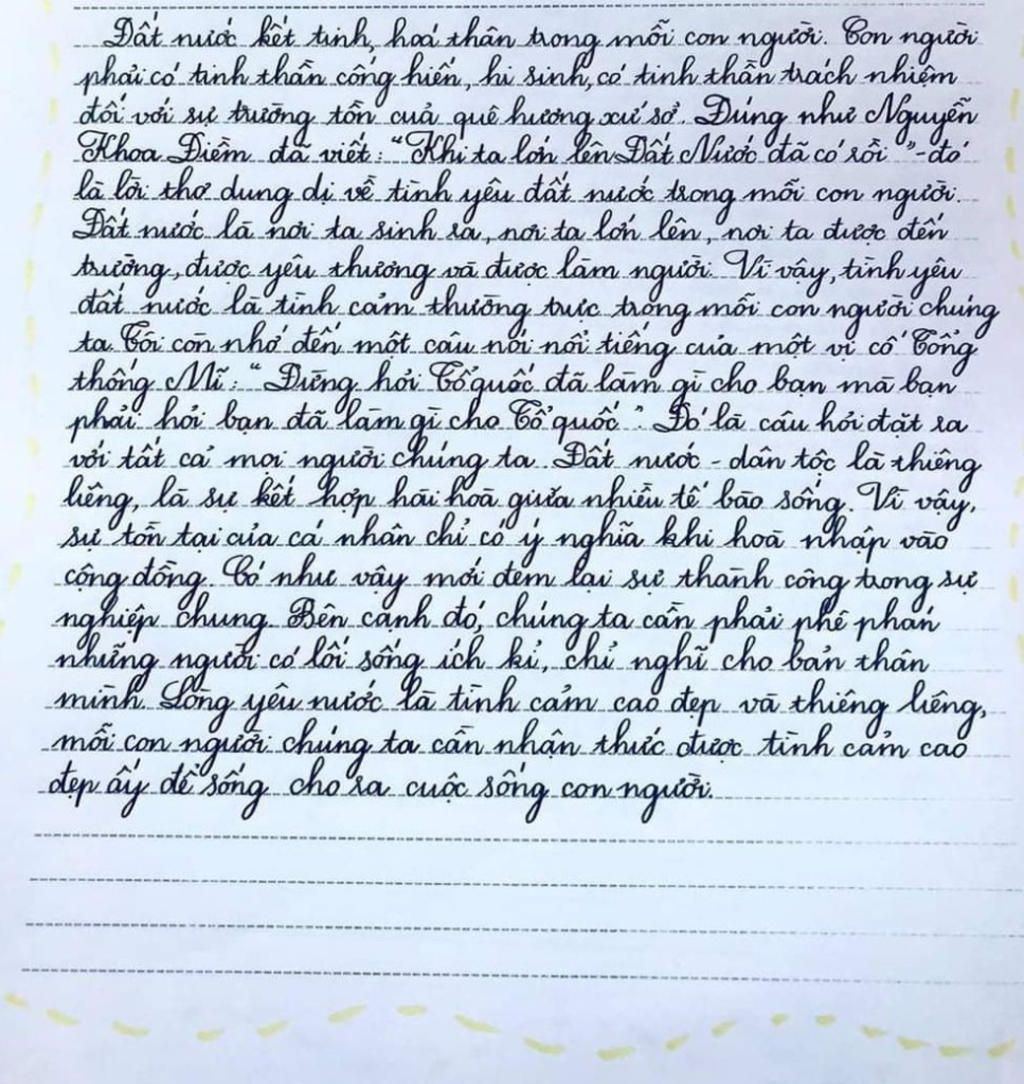 Đất nước kết tinh, hoá thân trong mỗi con người. Con người
phải có tinh thần cống hiến, hi sinh, có tinh thần trách nhiệm
đối với sự trường tồn của quê hương xứ sở. Đúng như Nguyễn
Khoa Điềm đã viết: "Khi ta lớn lên Đất Nước đã có rồi" - đó
là lời thơ dung dị về tình yêu đất nước trong mỗi con người.
Đất nước là nơi ta sinh ra, nơi ta lớn lên, nơi ta được đến
trường, được yêu thương và được làm người. Vì vậy, tình yêu
đất nước là tình cảm thường trực trong mỗi con người chúng
ta. Tôi còn nhớ đến một câu nói nổi tiếng của một vị cố Tổng
thống Mĩ: "Đừng hỏi Tổ quốc đã làm gì cho bạn mà bạn
phải hỏi bạn đã làm gì cho Tổ quốc". Đó là câu hỏi đặt ra
với tất cả mọi người chúng ta. Đất nước - dân tộc là thiêng
liêng, là sự kết hợp hài hoà giữa nhiều tế bào sống. Vì vậy,
sự tồn tại của cá nhân chỉ có ý nghĩa khi hoà nhập vào
cộng đồng. Có như vậy mới đem lại sự thành công trong sự
nghiệp chung. Bên cạnh đó, chúng ta cần phải phê phán
những người có lối sống ích kỉ, chỉ nghĩ cho bản thân
mình. Lòng yêu nước là tình cảm cao đẹp và thiêng liêng,
mỗi con người chúng ta cần nhận thức được tình cảm cao
đẹp ấy để sống cho ra cuộc sống con người.